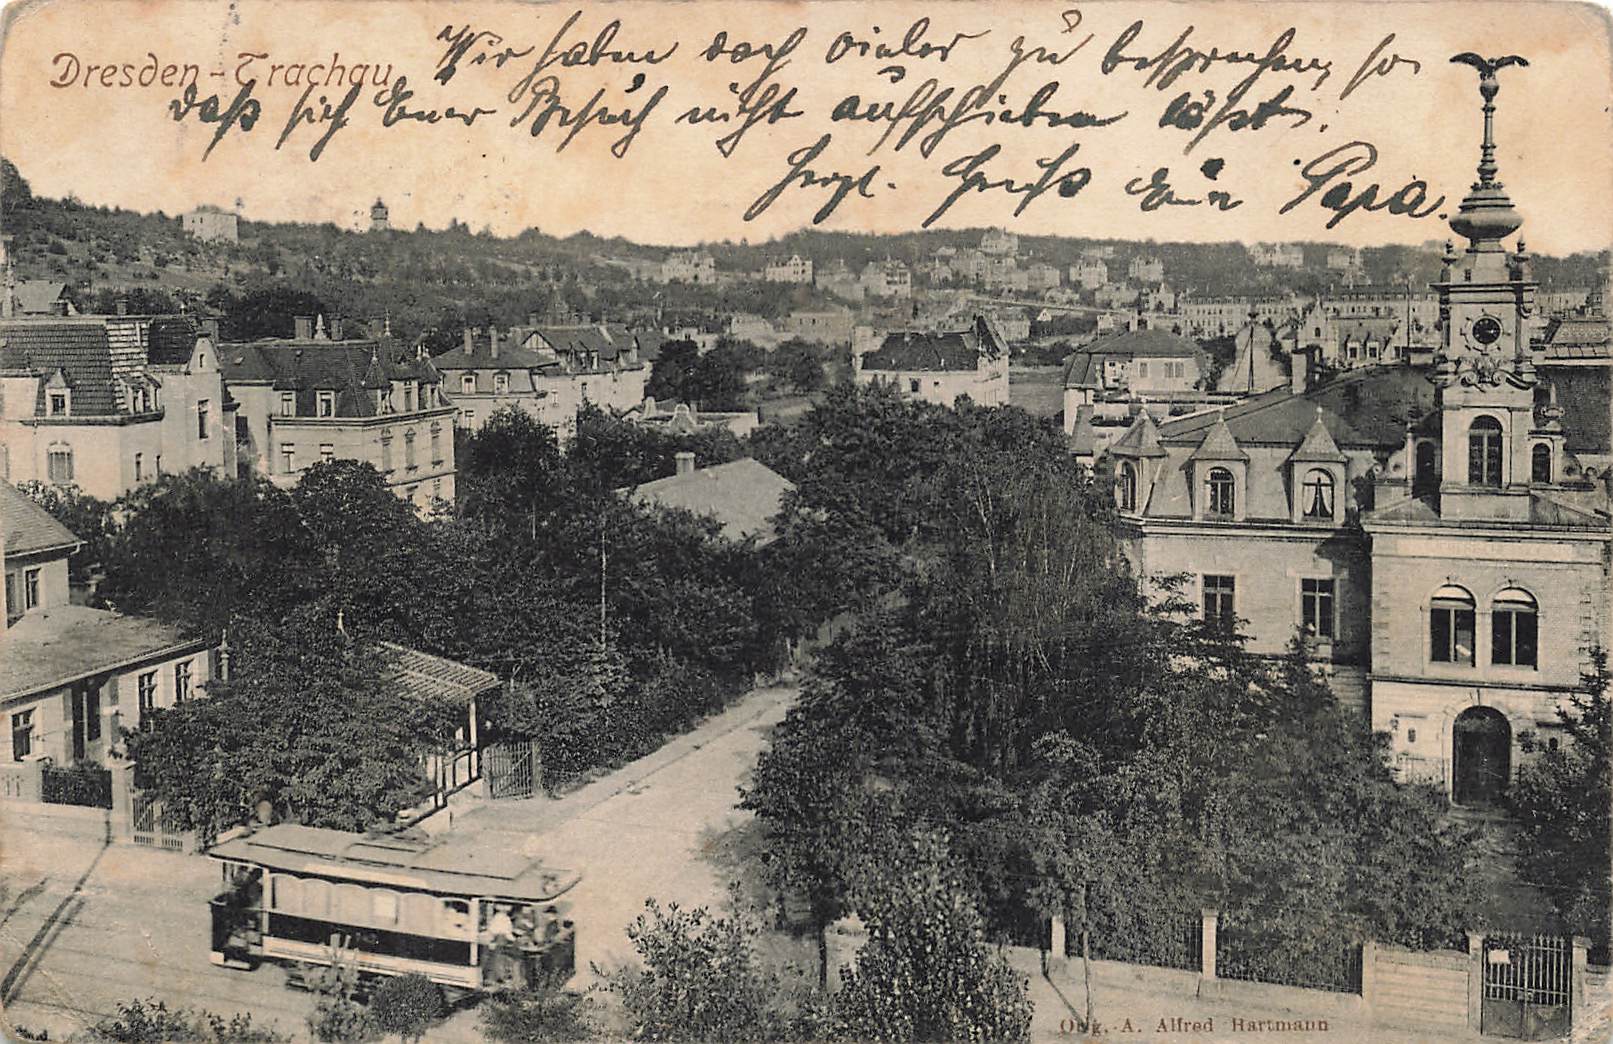 Dresden-Trachau
Wir haben doch vieles zu besprechen, so
daß sich Euer Besuch nicht aufschieben läßt.
Herzl. Gruß Euer Papa.
Orig. A. Alfred Hartmann